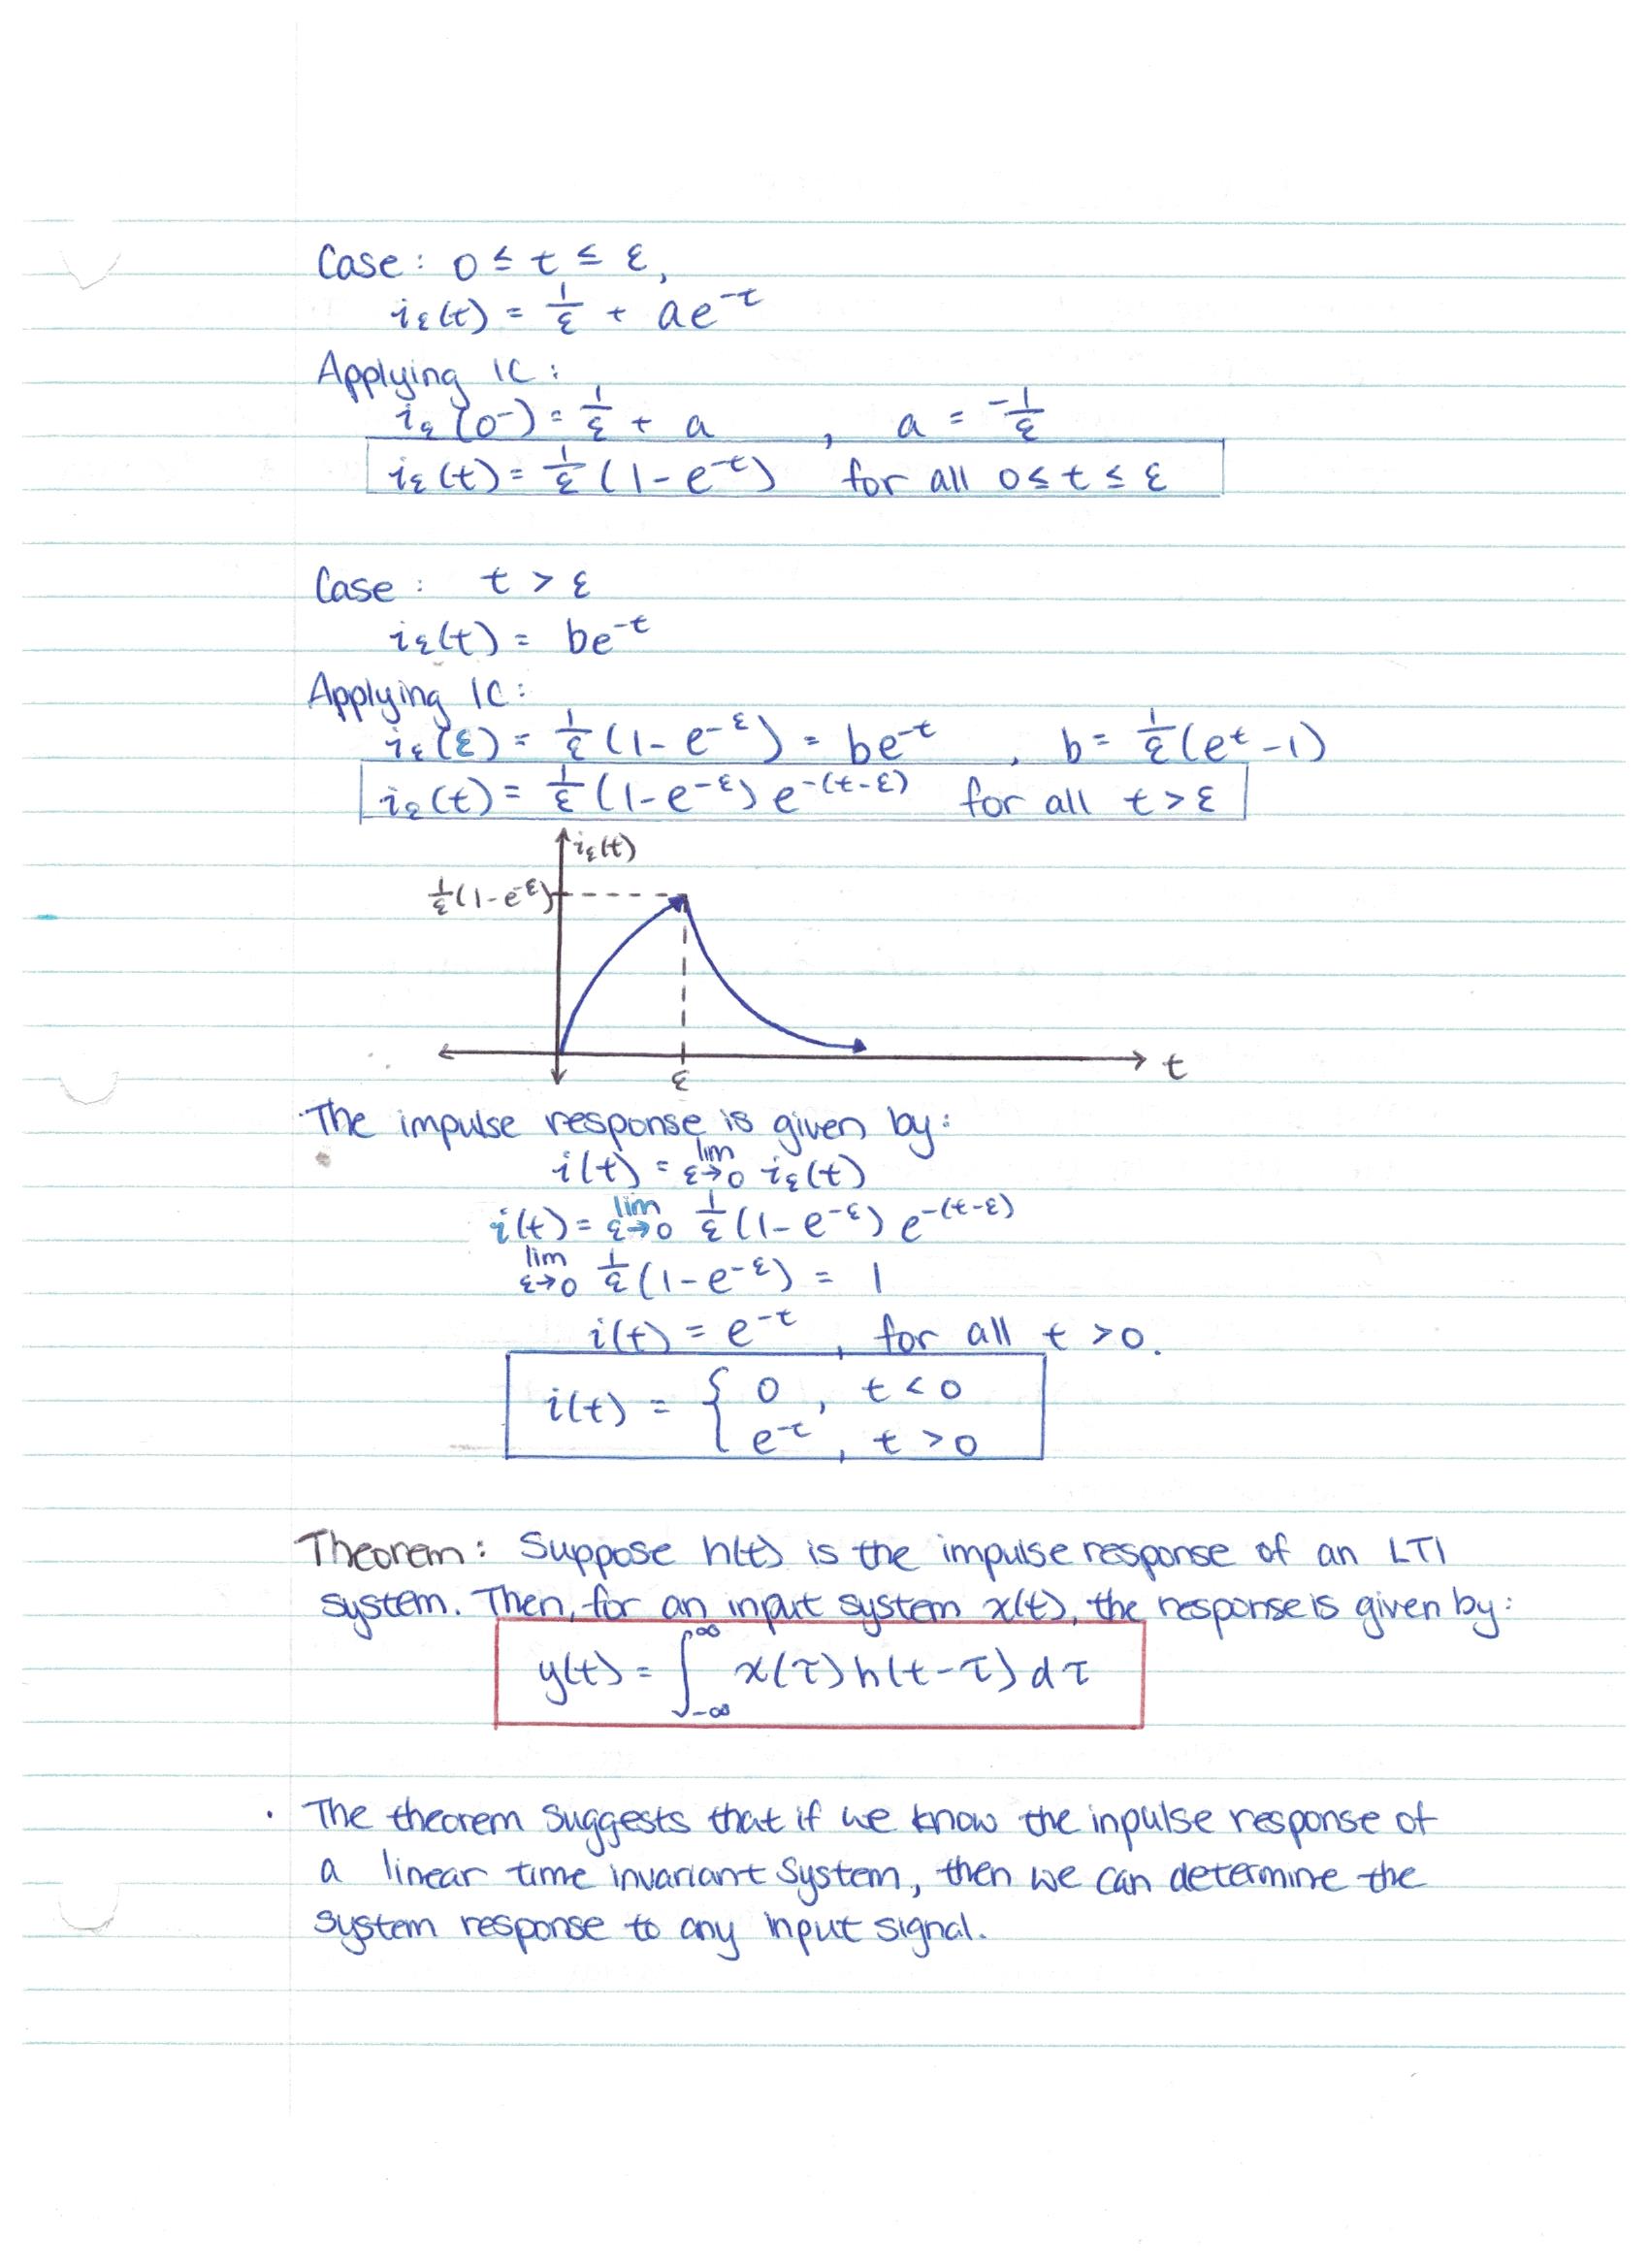 Case: 0 ≤ t ≤ ε,
iε(t) = 1/ε + ae^-t
Applying IC:
iε(0⁻) = 1/ε + a , a = -1/ε
iε(t) = 1/ε (1 - e^-t) for all 0 ≤ t ≤ ε
Case: t > ε
iε(t) = be^-t
Applying IC:
iε(ε) = 1/ε (1 - e^-ε) = be^-t , b = 1/ε (e^t - 1)
iε(t) = 1/ε (1 - e^-ε) e^-(t-ε) for all t > ε
iε(t)
1/ε (1 - e^-ε)
t
ε
·The impulse response is given by:
i(t) = lim ε→0 iε(t)
i(t) = lim ε→0 1/ε (1 - e^-ε) e^-(t-ε)
lim ε→0 1/ε (1 - e^-ε) = 1
i(t) = e^-t , for all t > 0.
i(t) = { 0 , t < 0
e^-t , t > 0
Theorem: Suppose h(t) is the impulse response of an LTI
system. Then, for an input system x(t), the response is given by:
y(t) = ∫_-∞^∞ x(τ) h(t-τ) dτ
· The theorem suggests that if we know the inpulse response of
a linear time invariant system, then we can determine the
system response to any input signal.